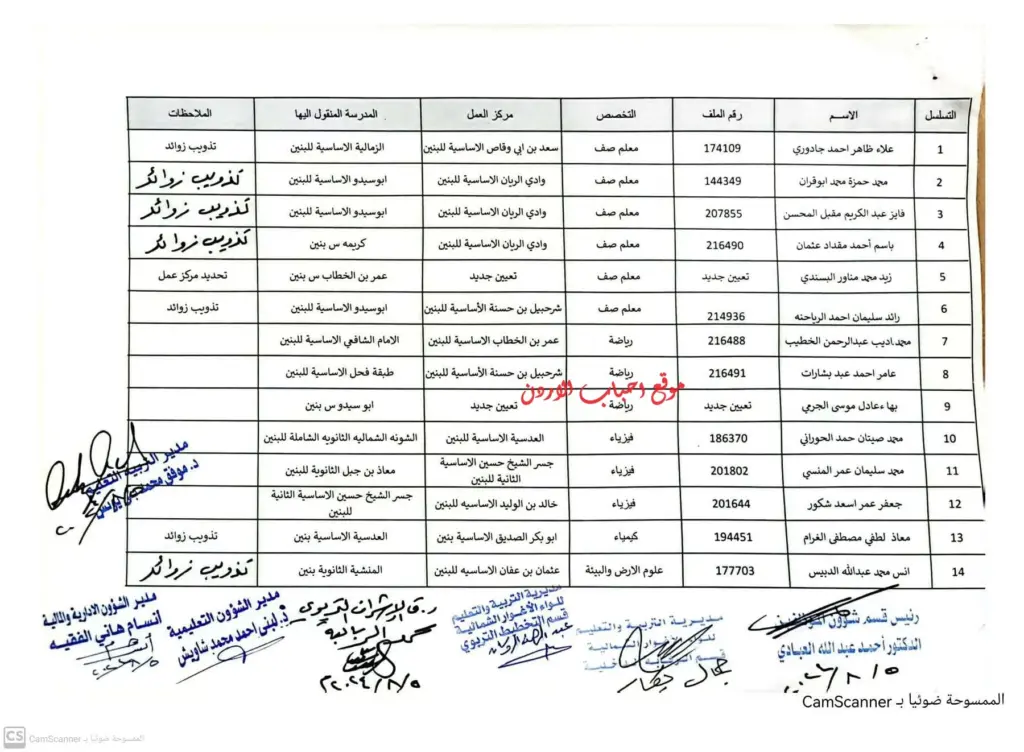 التسلسل الاســم رقم الملف التخصص مركز العمل المدرسة المنقول اليها الملاحظات
1 علاء ظاهر احمد جادوري 174109 معلم صف سعد بن ابي وقاص الاساسية للبنين الزمالية الاساسية للبنين تذويب زوائد
2 محمد حمزة محمد ابوقران 144349 معلم صف وادي الريان الاساسية للبنين ابوسيدو الاساسية للبنين تذويب زوائد
3 فايز عبد الكريم مقبل المحسن 207855 معلم صف وادي الريان الاساسية للبنين ابوسيدو الاساسية للبنين تذويب زوائد
4 باسم أحمد مقداد عثمان 216490 معلم صف وادي الريان الاساسية للبنين كريمه س بنين تذويب زوائد
5 زيد محمد مناور البسندي تعيين جديد معلم صف تعيين جديد عمر بن الخطاب س بنين تحديد مركز عمل
6 رائد سليمان احمد الرياحنه 214936 معلم صف شرحبيل بن حسنة الأساسية للبنين ابوسيدو الاساسية للبنين تذويب زوائد
7 محمد اديب عبدالرحمن الخطيب 216488 رياضة عمر بن الخطاب الاساسية للبنين الامام الشافعي الاساسية للبنين
8 عامر احمد عبد بشارات 216491 رياضة شرحبيل بن حسنة الأساسية للبنين طبقة فحل الاساسية للبنين
موقع احباب الاردن
9 بهاء عادل موسى الجرمي تعيين جديد رياضة تعيين جديد ابو سيدو س بنين
10 محمد صيتان حمد الحوراني 186370 فيزياء العدسية الاساسية للبنين الشونه الشماليه الثانويه الشاملة للبنين
11 محمد سليمان عمر المنسي 201802 فيزياء جسر الشيخ حسين الاساسية الثانية للبنين معاذ بن جبل الثانوية للبنين
12 جعفر عمر اسعد شكور 201644 فيزياء خالد بن الوليد الاساسيه للبنين جسر الشيخ حسين الاساسية الثانية للبنين
13 معاذ لطفي مصطفى الغرام 194451 كيمياء ابو بكر الصديق الاساسية بنين العدسية الاساسية بنين تذويب زوائد
14 انس محمد عبدالله الدبيس 177703 علوم الارض والبيئة عثمان بن عفان الاساسيه للبنين المنشية الثانوية بنين تذويب زوائد
مدير التربية والتعليم
د. موفق محمد بني يونس
رئيس قسم شؤون
الدكتور أحمد عبد الله العبادي
مديرية التربية والتعليم
للواء الأغوار الشمالية
مديرية التربية والتعليم
للواء الأغوار الشمالية
قسم التخطيط التربوي
ر.ق الإشراف التربوي
٢٠٢٤/٨/٥
مدير الشؤون التعليمية
د. لبنى احمد محمد شاويش
مدير الشؤون الادارية والمالية
أنسام هاني الفقيه
الممسوحة ضوئيا بـ CamScanner
CS CamScanner الممسوحة ضوئيا بـ